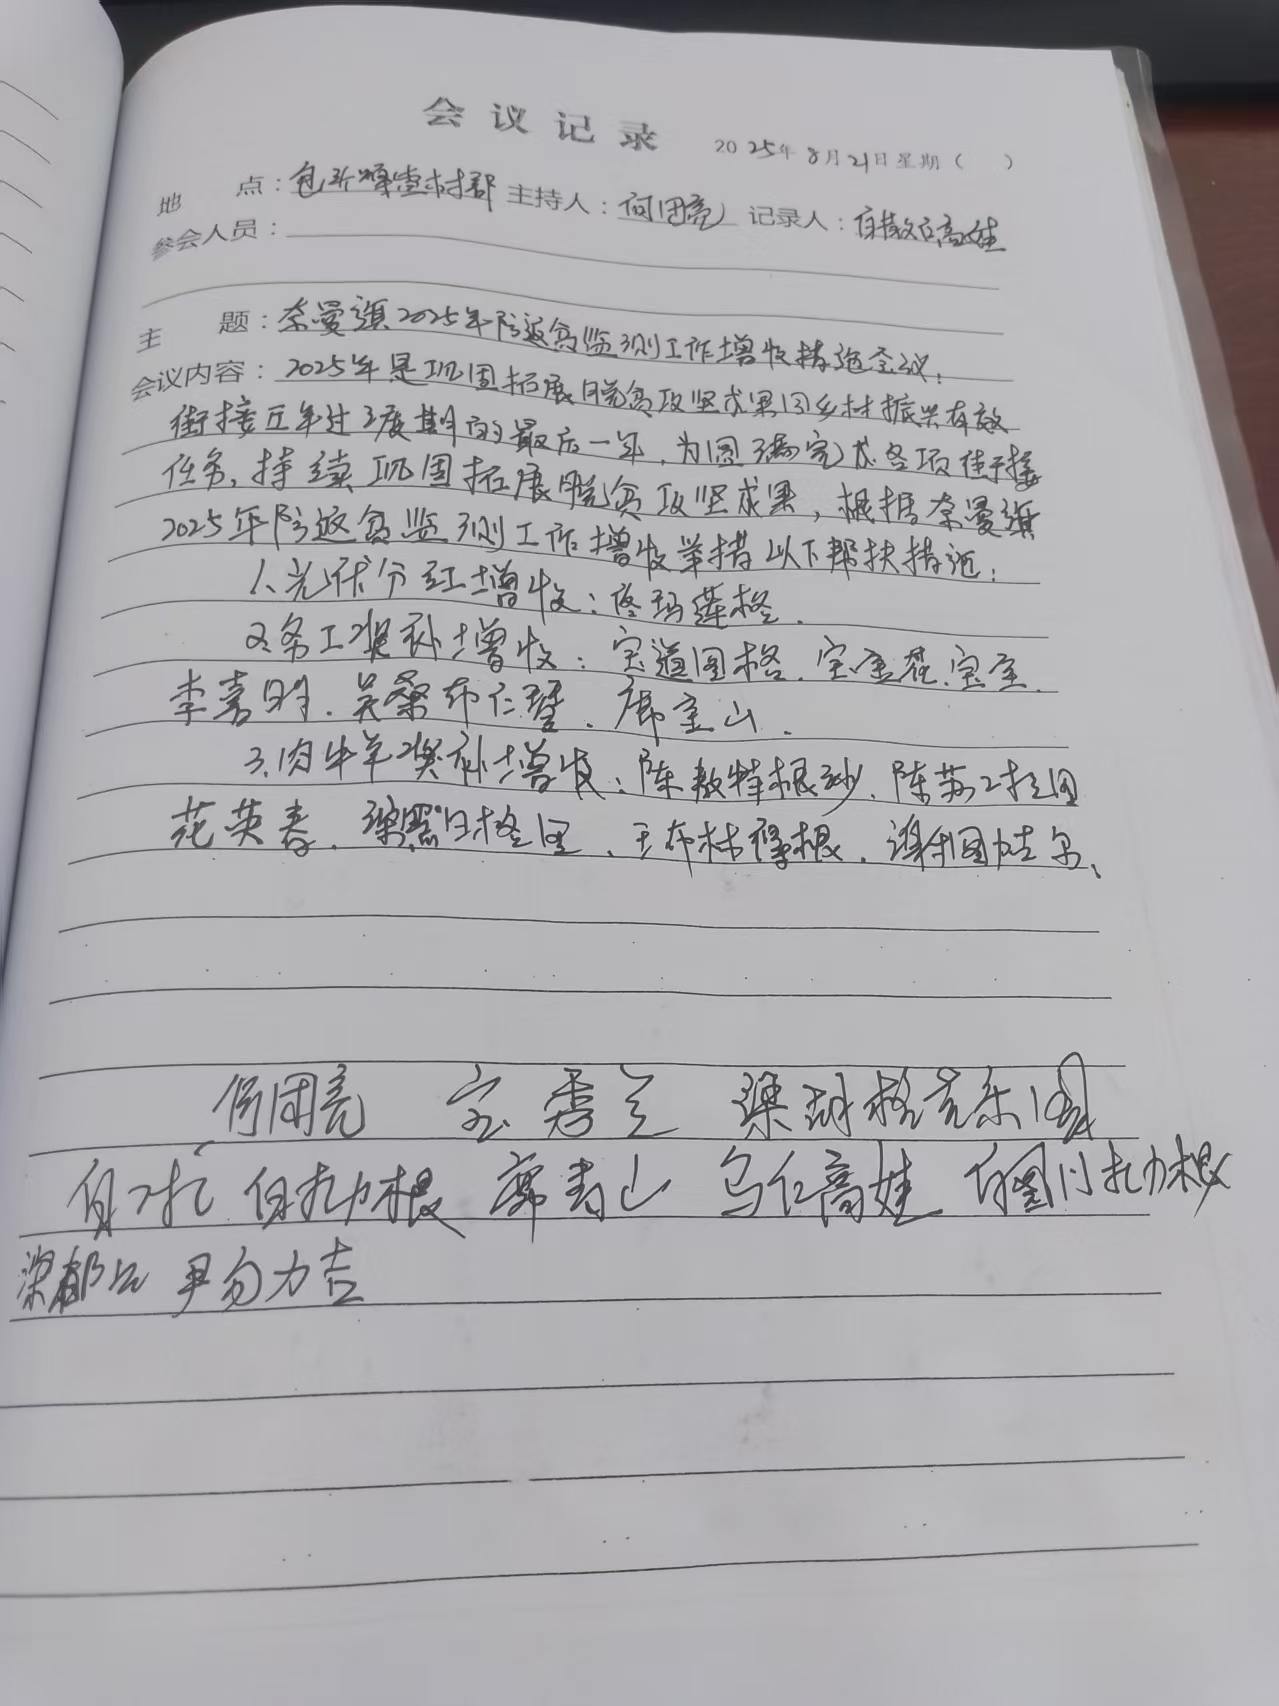 会议记录
2025年8月21日星期( )
地 点: 主持人:何团亮 记录人:
参会人员:
主 题:奈曼旗2025年防返贫监测工作增收措施会议:
会议内容:2025年是巩固拓展脱贫攻坚成果同乡村振兴有效
衔接五年过渡期的最后一年,为圆满完成各项衔接
任务,持续巩固拓展脱贫攻坚成果,根据奈曼旗
2025年防返贫监测工作增收举措以下帮扶措施:
1、光伏分红增收:佟玛莲格.
2、务工奖补增收:宝道图格、宝金花、宝金、
李嘉明、吴桑布仁、席金山、
3、肉牛羊奖补增收:陈敖特根、陈苏
花英春、梁 日格图、王布林得根、
何团亮 宝秀兰 梁
白 白扎力根 席青山 乌仁高娃 扎力根
梁都 尹勿力吉